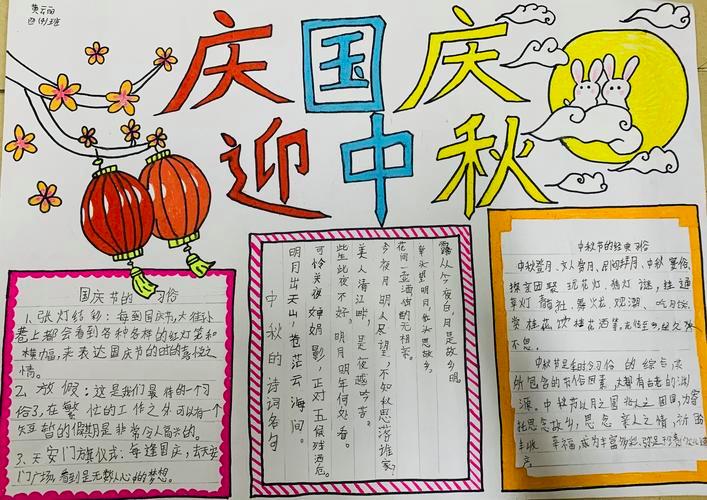 黄云丽
四(4)班
庆国庆
迎中秋
国庆节的习俗
1、张灯结彩：每到国庆节,大街小
巷上都会看到各种各样的红灯笼和
横幅,来表达国庆节的喜悦之
情。
2、放假：这是我们最待的一个习
俗了,在繁忙的工作之外可以有一个
短暂的假期是非常令人高兴的。
3、天安门升旗仪式：每逢国庆,去天安
门广场看到是无数人心中的梦想。
露从今夜白,月是故乡明。
举头望明月,低头思故乡。
花间一壶酒,独酌无相亲。
今夜月明人尽望,不知秋思落谁家？
美人清江畔,是夜越吟苦。
此生此夜不好,明月明年何处看。
可怜关夜婵娟影,正对五侯残酒卮。
明月出天山,苍茫云海间。
中秋的诗词名句
中秋节的经典习俗
中秋赏月、文人赏月、民间拜月、中秋宴俗、
探亲团聚、玩花灯、猜灯谜,挂通
草灯,舞火龙、观潮、吃月饼、
赏桂花、饮桂花酒等,流传至今,经久
不息。
中秋节是秋季时令习俗的综合,
所包含的节俗因素,大都有古老的渊
源。中秋节以月之圆兆人之团圆,为寄
托思念故乡,思念亲人之情,祈盼
丰收、幸福,成为丰富多彩、弥足珍贵的文化遗
产。